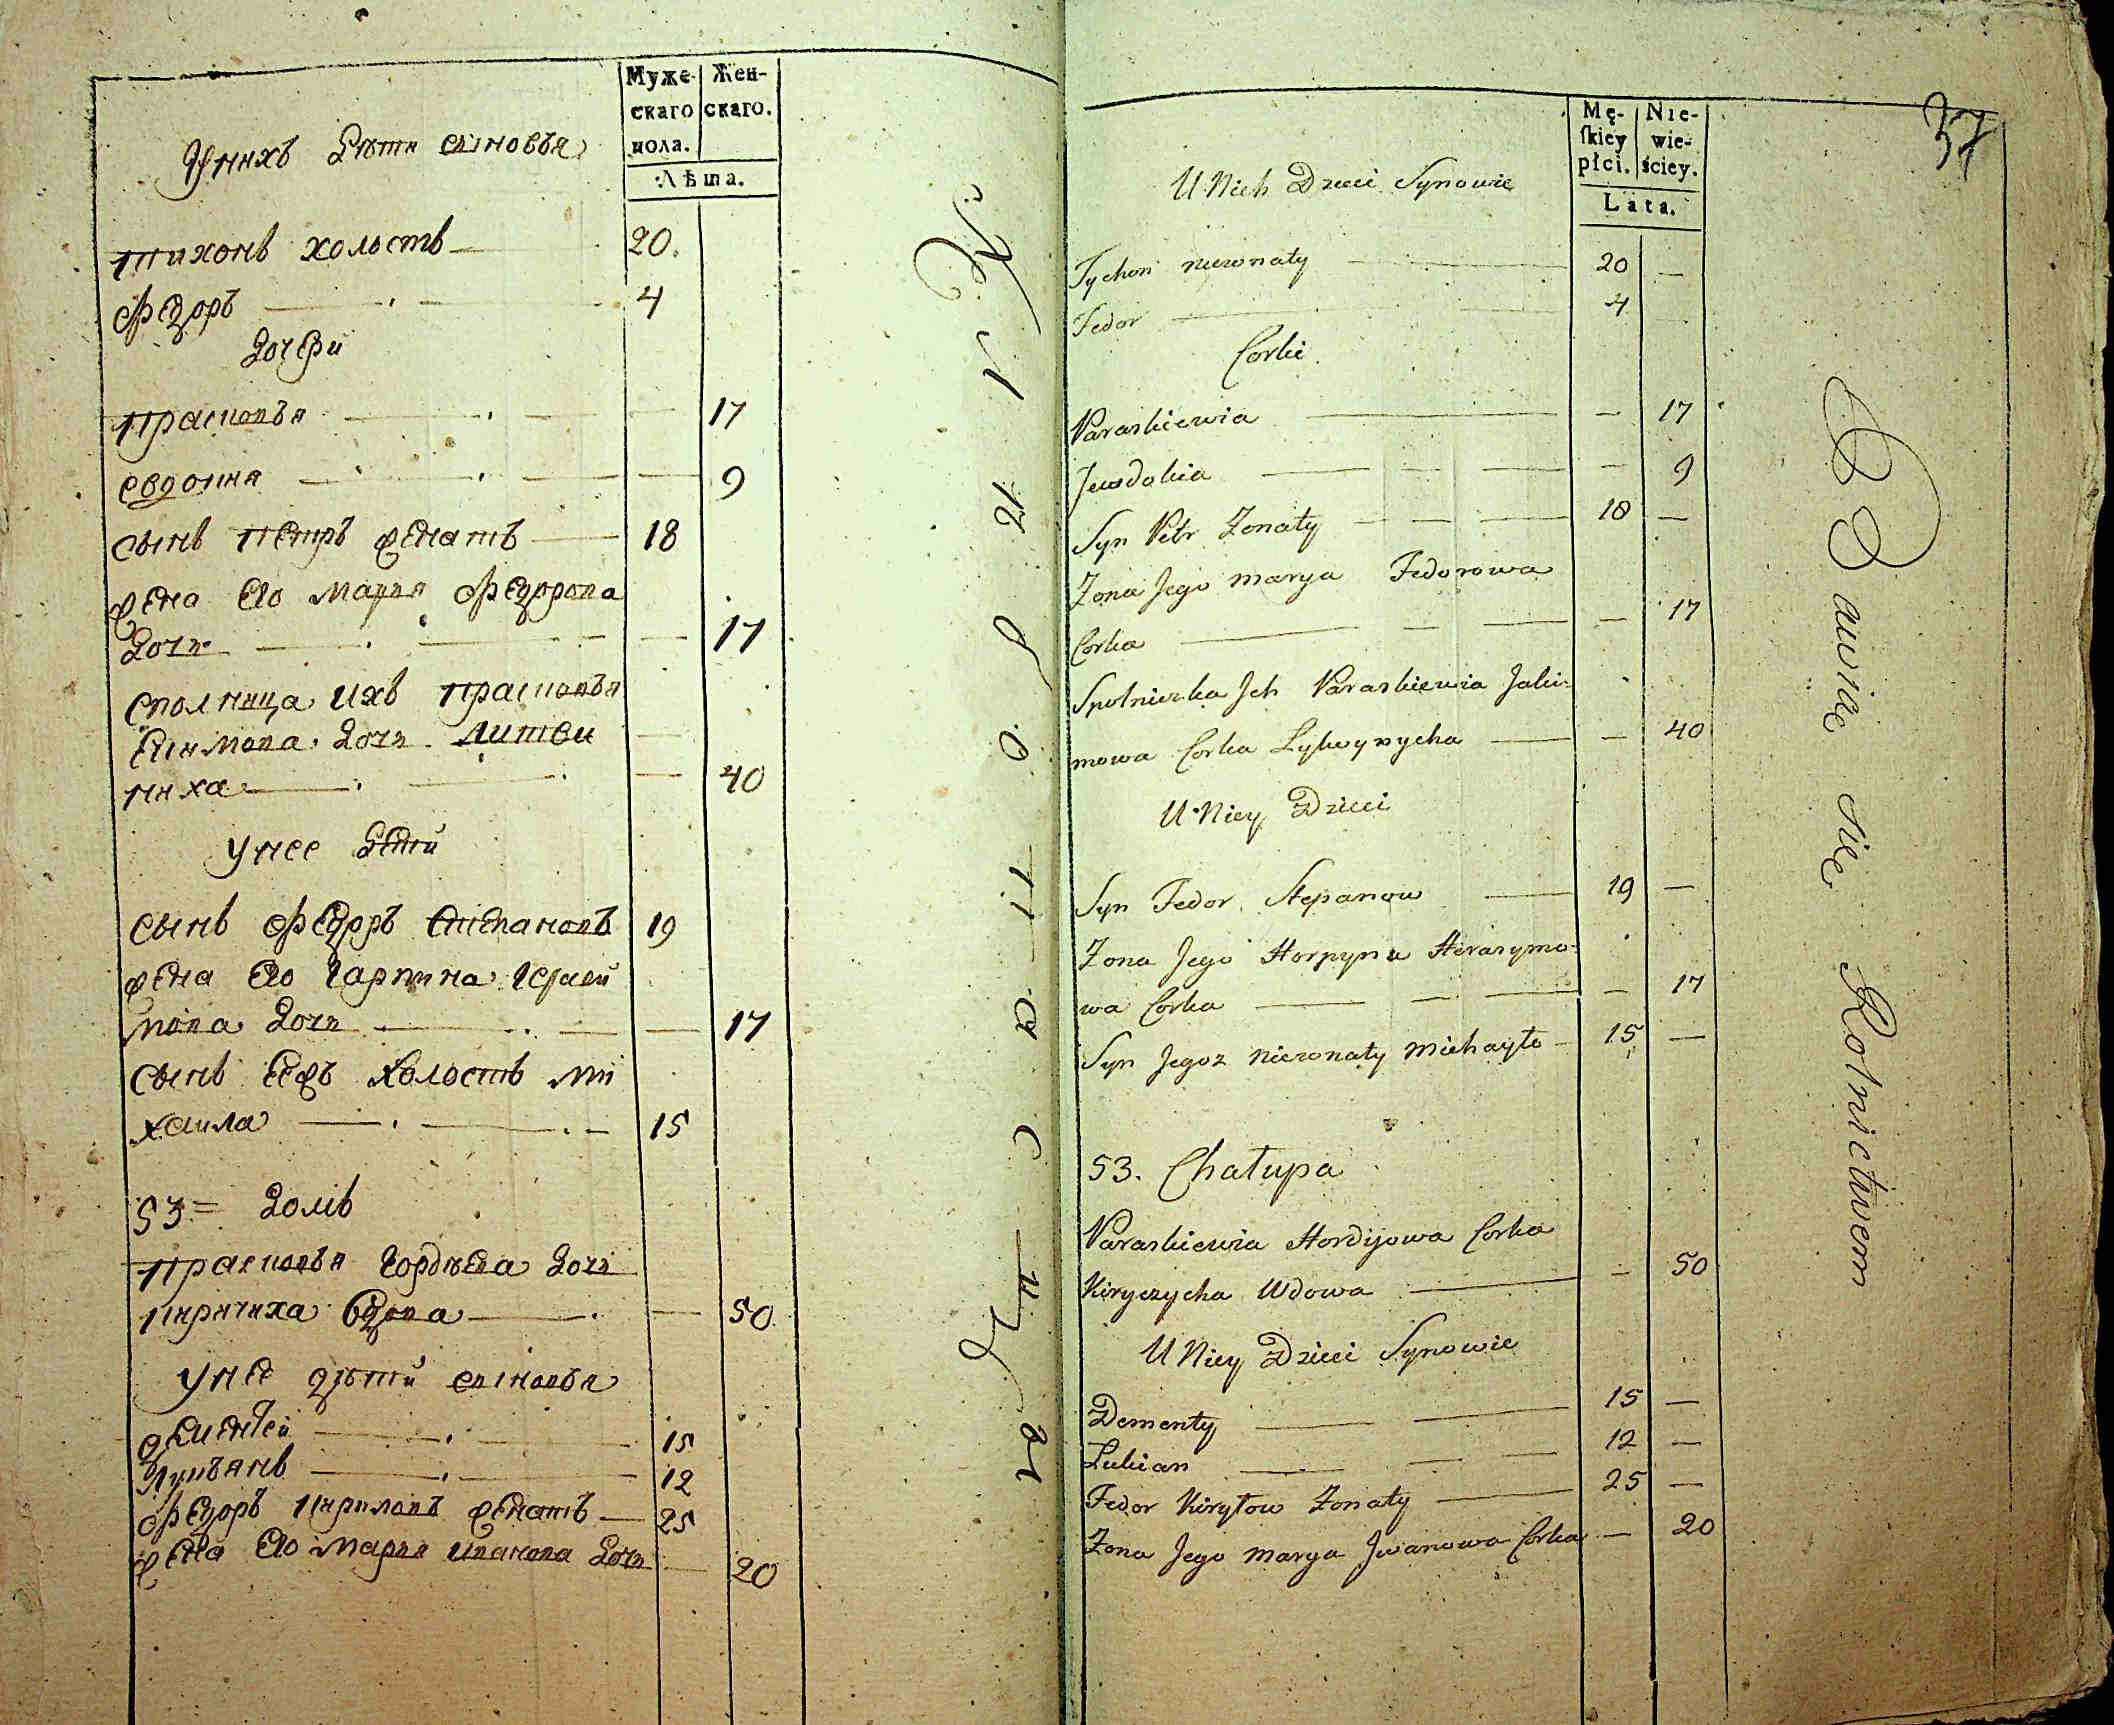 Муже-
скаго
пола.
Жен-
скаго.
Лѣта.
У нихъ Дѣти сыновья
Тихонъ холостъ 20.
Федоръ 4
Дочери
Прасковья 17
Евдокия 9
сынъ Петръ женатъ 18
жена Его Мария Федорова
Дочь 17
сполница ихъ Прасковья
Екимова Дочь Литви
ниха 40
У нее Детей
сынъ Федоръ Степановъ 19
жена Его Гарпина Гераси
мова Дочь 17
сынъ Еежъ холостъ Ми
хаила 15
53 = Домъ
Прасковья Гордѣева Дочь
Киричиха вдова 50.
У нее дѣтей сыновья
Дементей 15
Лукьянъ 12
Федоръ Кириловъ женатъ 25
жена Его Мария Иванова Дочь 20
37
Mę-
skiey
płci.
Nie-
wie-
ściey.
Lata.
U Nich Dzieci Synowie
Tychon nieżonaty 20 —
Fedor 4
Corki
Paraskiewia — 17
Jewdokia — 9
Syn Petr Żonaty 18 —
Żona Jego Marya Fedorowa
Corka — 17
Spolniczka Ich Paraskiewia Jaki-
mowa Corka Lytwynycha — 40
U Niey Dzieci
Syn Fedor Stepanow 19 —
Żona Jego Horpyna Herasymo-
wa Corka — 17
Syn Jegoż nieżonaty Michayło 15 —
53. Chałupa
Paraskiewia Hordijowa Corka
Kiryczycha Wdowa — 50
U Niey Dzieci Synowie
Dementy 15 —
Lukian 12 —
Fedor Kiryłow Żonaty 25 —
Żona Jego Marya Jwanowa Corka — 20
Bawią sie Rolnictwem